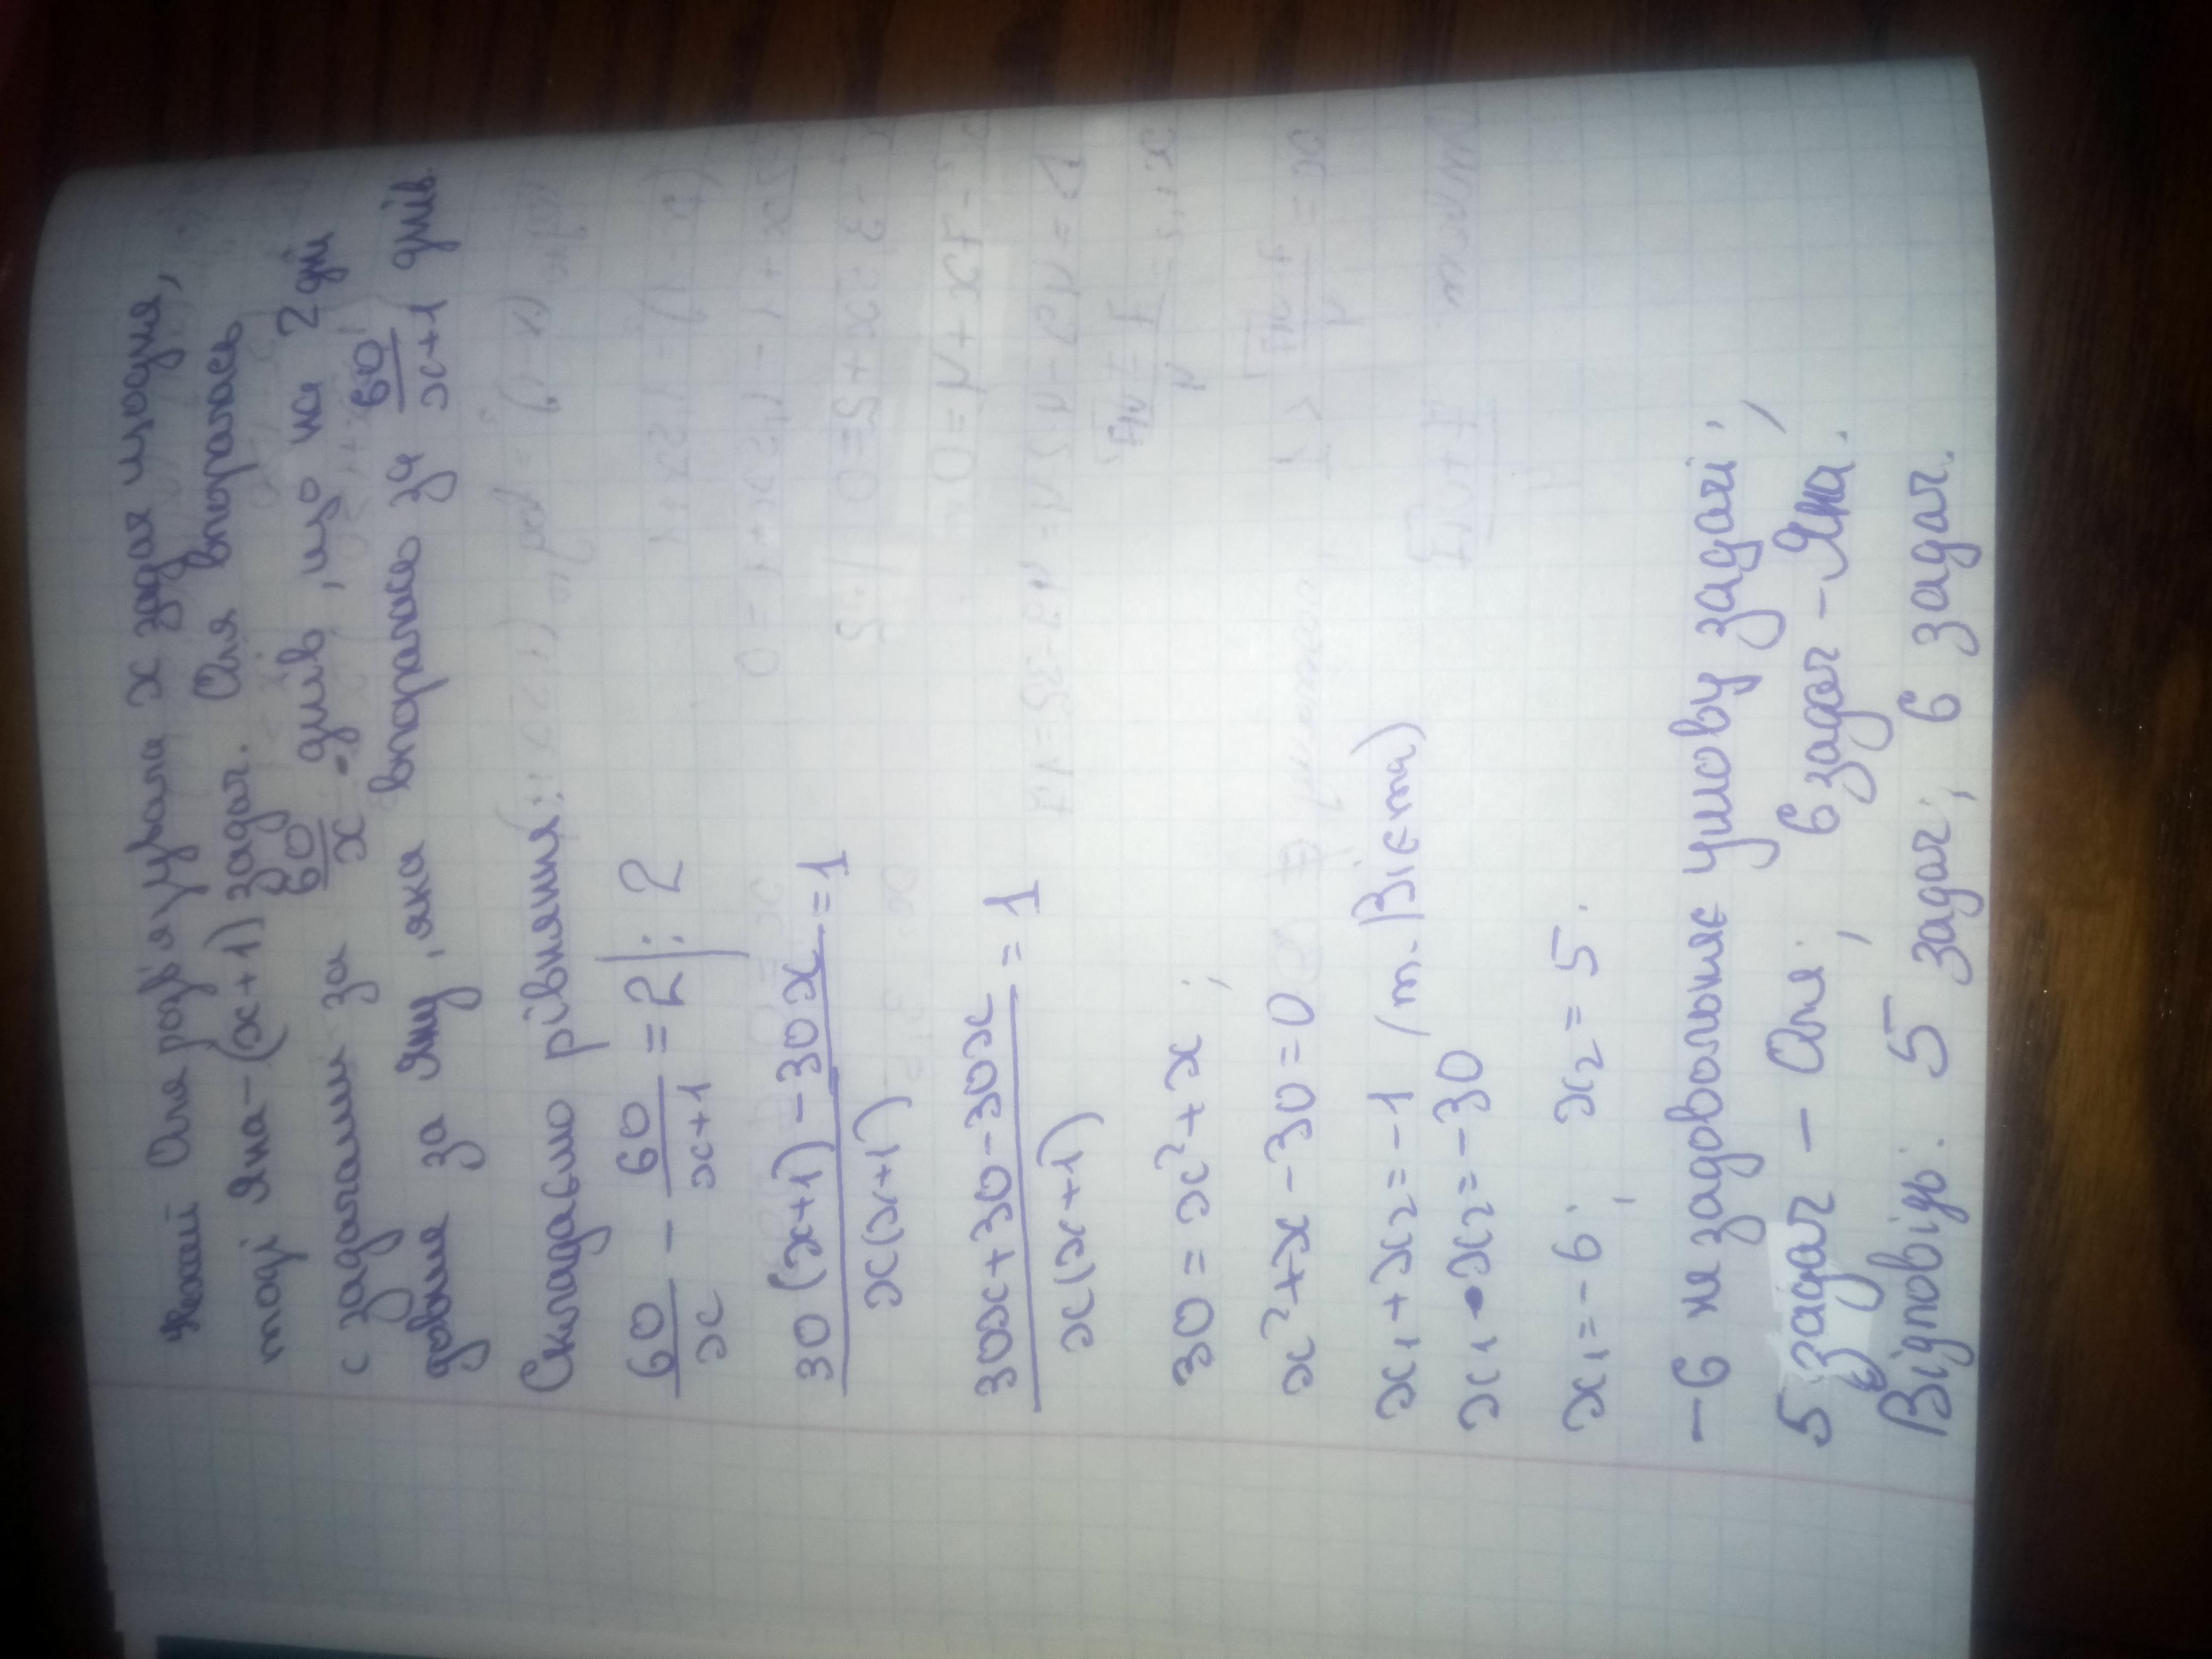 Нехай Оля розв'язувала х задач щодня,
тоді Яна - (x+1) задач. Оля впоралась
с задачами за 60/x днів, що на 2 дні
довше за Яну, яка впоралась за 60/x+1 днів.
Складаємо рівняння:
60/x - 60/x+1 = 2 |: 2
30(x+1) - 30x / x(x+1) = 1
30x + 30 - 30x / x(x+1) = 1
30 = x² + x ;
x² + x - 30 = 0
x₁ + x₂ = -1 (т. Вієта)
x₁ • x₂ = -30
x₁ = -6 ; x₂ = 5.
-6 не задовольняє умову задачі ;
5 задач - Оля ; 6 задач - Яна.
Відповідь: 5 задач ; 6 задач.